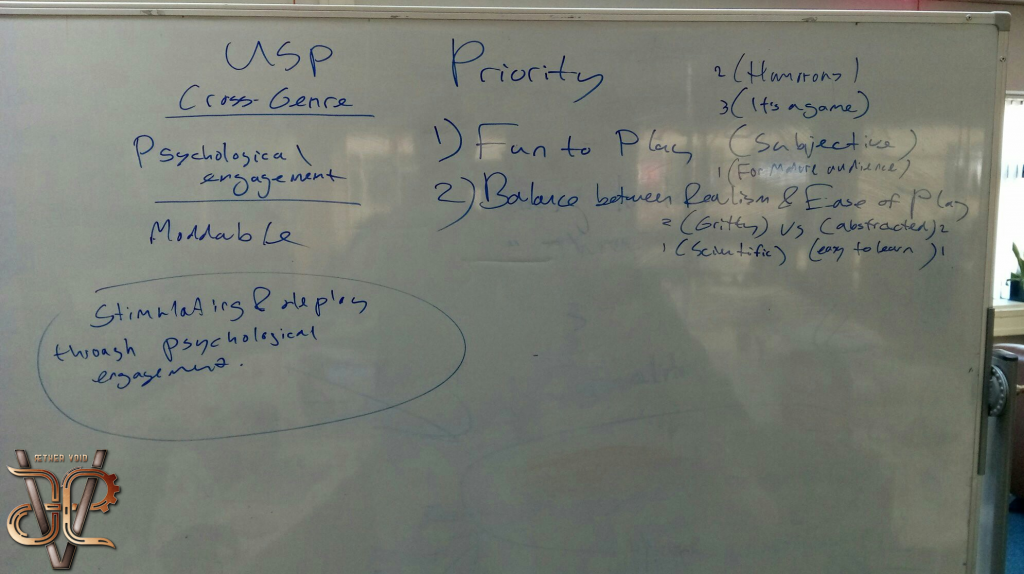 USP
Cross-Genre
Psychological
engagement
Moddable
Stimulating & replay
through psychological
engagement.
Priority
2 (Humorous)
3 (It's a game)
1) Fun to Play (Subjective)
1 (For Mature audience)
2) Balance between Realism & Ease of Play
2 (Gritty) vs (abstracted) 2
1 (Scientific) (easy to learn) 1
ÆTHER VOID